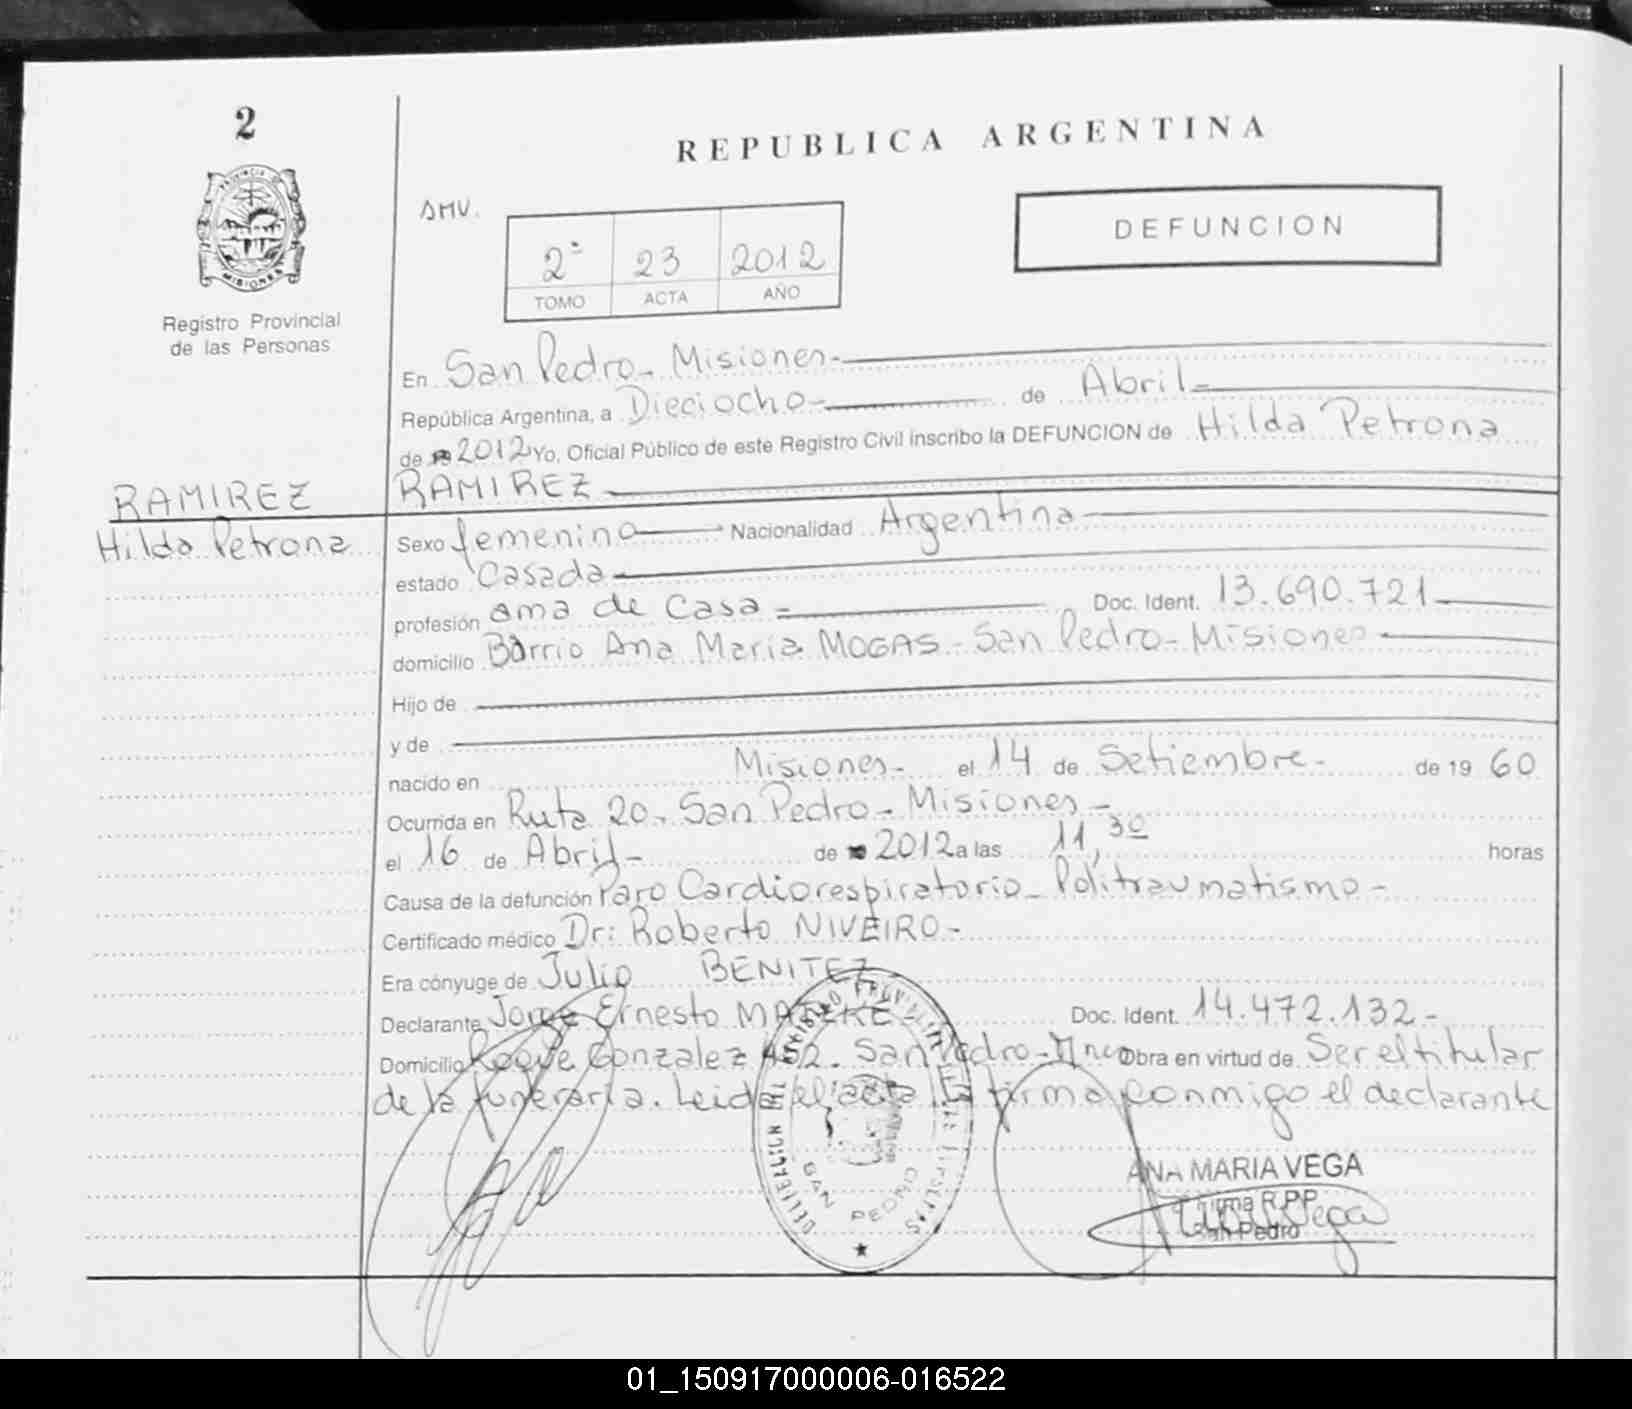 2
REPUBLICA ARGENTINA
PROVINCIA DE
MISIONES
Registro Provincial
de las Personas
AMV.
2ª 23 2012
TOMO ACTA AÑO
DEFUNCION
En San Pedro - Misiones -
República Argentina, a Dieciocho - de Abril -
de 2012 Yo, Oficial Público de este Registro Civil inscribo la DEFUNCION de Hilda Petrona
RAMIREZ
RAMIREZ
Hilda Petrona
Sexo femenino Nacionalidad Argentina
estado Casada
profesión ama de Casa Doc. Ident. 13.690.721
domicilio Barrio Ana Maria MOGAS - San Pedro - Misiones
Hijo de
y de
nacido en Misiones - el 14 de Setiembre - de 19 60
Ocurrida en Ruta 20 - San Pedro - Misiones -
el 16 de Abril - de 2012 a las 11,30 horas
Causa de la defunción Paro Cardiorespiratorio - Politraumatismo -
Certificado médico Dr: Roberto NIVEIRO -
Era cónyuge de Julio BENITEZ
Declarante Jorge Ernesto Doc. Ident. 14.472.132 -
Domicilio Roque Gonzalez 452 - San Pedro - Mnes Obra en virtud de Ser el titular
de la funeraria. Leida el acta la firma conmigo el declarante
SAN PEDRO
ANA MARIA VEGA
Firma R.P.P.
San Pedro
01_150917000006-016522